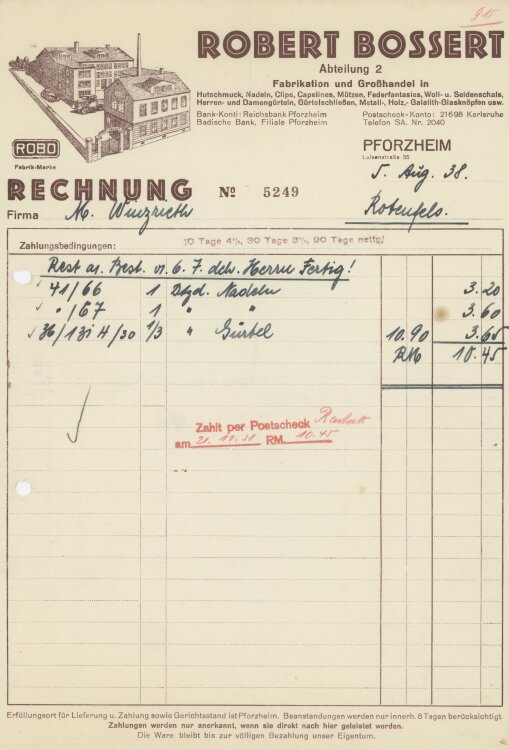 ROBERT BOSSERT
Abteilung 2
Fabrikation und Großhandel in
Hutschmuck, Nadeln, Clips, Capelines, Mützen, Federfantasies, Woll- u. Seidenschals,
Herren- und Damengürteln, Gürtelschließen, Metall-, Holz,- Galalith-Glasknöpfen usw.
Bank-Konti: Reichsbank Pforzheim
Badische Bank, Filiale Pforzheim
Postscheck-Konto: 21698 Karlsruhe
Telefon SA. Nr. 2040
ROBO
Fabrik-Marke
PFORZHEIM
Luisenstraße 35
5. Aug. 38.
RECHNUNG No 5249
Firma M. Winzrieth
Rotenfels.
Zahlungsbedingungen: 10 Tage 4%, 30 Tage 3%, 90 Tage netto
Rest a. Best. v. 6. 7. dch. Herrn Fertig!
41/66 1 Dtzd. Nadeln 3.20
" /67 1 " " 3.60
36/131 4/30 1/3 " Gürtel 10.90 3.65
RM 10.45
Zahlt per Postscheck
am RM. 10.45
Erfüllungsort für Lieferung u. Zahlung sowie Gerichtsstand ist Pforzheim. Beanstandungen werden nur innerh. 8 Tagen berücksichtigt.
Zahlungen werden nur anerkannt, wenn sie direkt nach hier geleistet werden.
Die Ware bleibt bis zur völligen Bezahlung unser Eigentum.